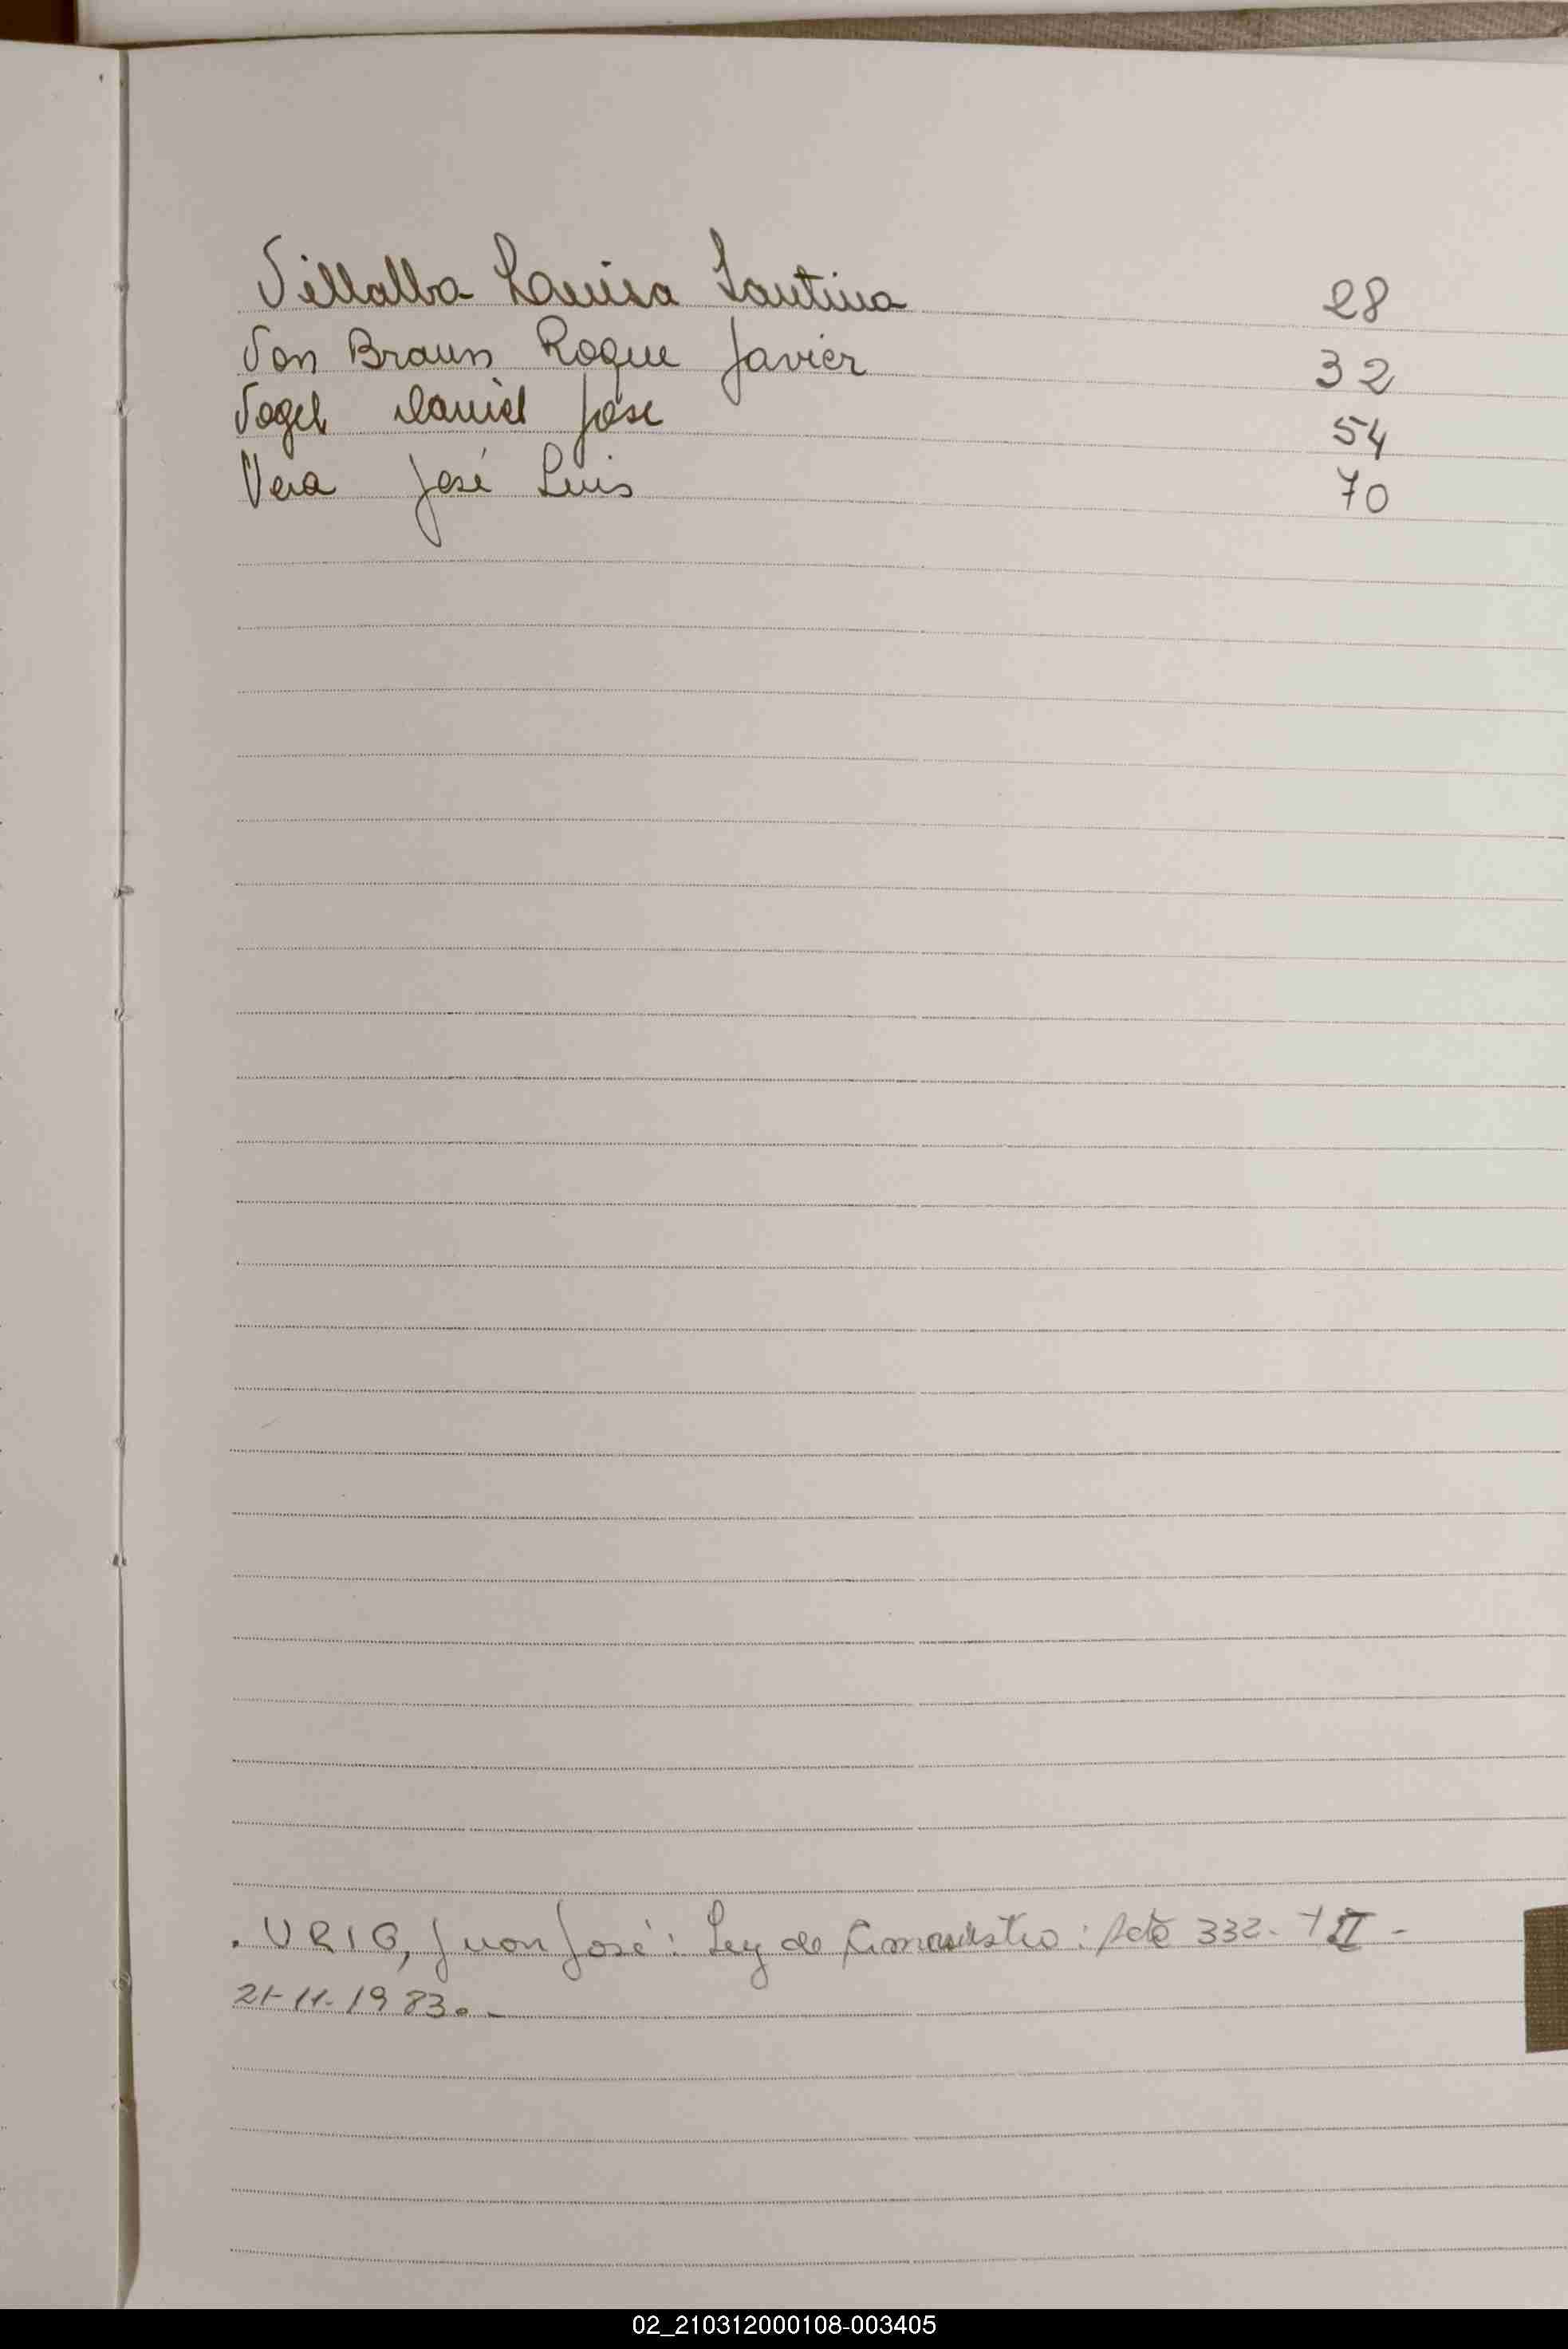 Villalba Louisa Santina 28
Von Braun Roque Javier 32
Vogel Daniel Jose 54
Vera José Luis 70
. URIG, Juan José: Ley de : Acta 332- TII -
21-11-1983.-
02_210312000108-003405